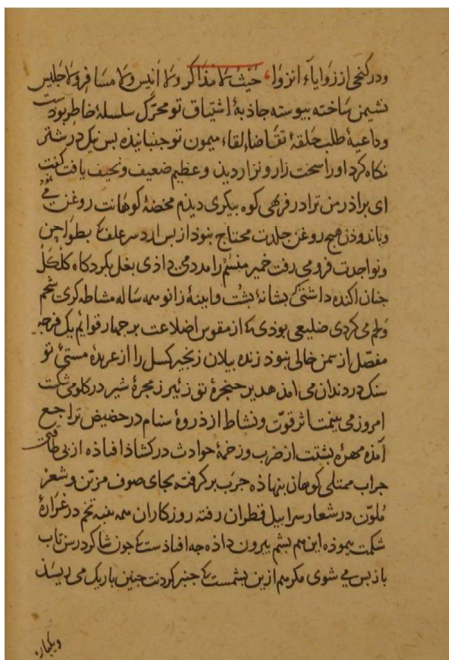 ودر کنجی از زوایاء انزوا، حیث لا مذاکر ولا انیس ولا مسافر ولا جلیس
نشیمن ساخته پیوسته جاذبهٔ اشتیاق تو محرک سلسلهٔ خاطر بودست
وداعیهٔ طلب حلقهٔ تقاضاء لقاء میمون تو جنبانیذه بس نیک در شتر
نکاه کرد اورا سخت زار ونزار دیذ وعظیم ضعیف ونحیف یافت کفت
ای براذر من ترا در فربهی کوه پیکری دیذم محضهٔ کوهانت روغن
وباندوذن هیچ روغن جلدت محتاج نبوذ از بس ارد سر علف کی بطواحن
ونواجذت فرو می رفت خمیر را مدد می داذی بغل وکردکاه
جنان اکنده داشتی کی بشانهٔ پشت واینهٔ زانو همه ساله مشاطه کری شحم
ولحم می کردی ضلیعی بوذی کی از مقوس اضلاعت بر حمار قوایم یک فرجهٔ
مفصل از سمن خالی نبوذ زنده پیلان زنجیر کسل را از عربدهٔ مستی تو
سنک در دندان می امذ هدیر حنجرهٔ تو زئیر زمجرهٔ شیر در کلو می شکست
امروز می بینمت اثر قوت ونشاط از ذروهٔ سنام در حضیض تراجع
آمذه مهرهٔ پشتت از ضرب وزخمهٔ حوادث در کشاذ افتاذه از بی طاقتی
جراب ممتلی کوهان بنهاذه جرب بر کرفته بجای صوف مزین وشعر
ملون در شعار سرابیل قطران رفته روزکاران همه پنبه تخم در غرارهٔ
شکمت پیموذه این هم پشم بیرون داذه جه افتاذست کی جون شاکرد رسن تاب
باز پس می شوی مکر هم ازین پشمست کی جنبر کردنت جنین باریک می ریسذ